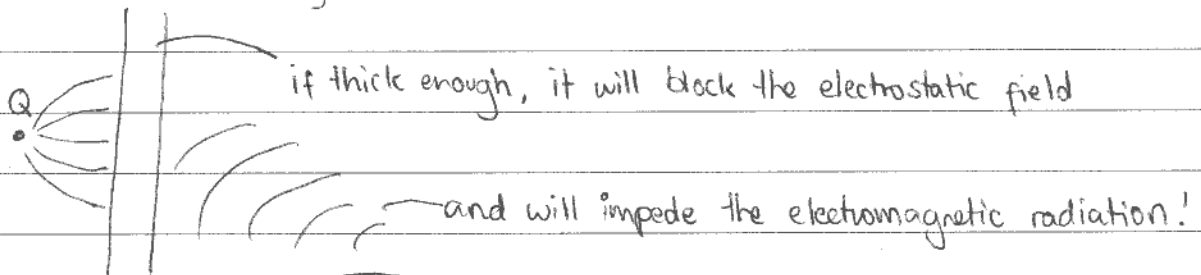 Q
if thick enough, it will block the electrostatic field
and will impede the electromagnetic radiation!